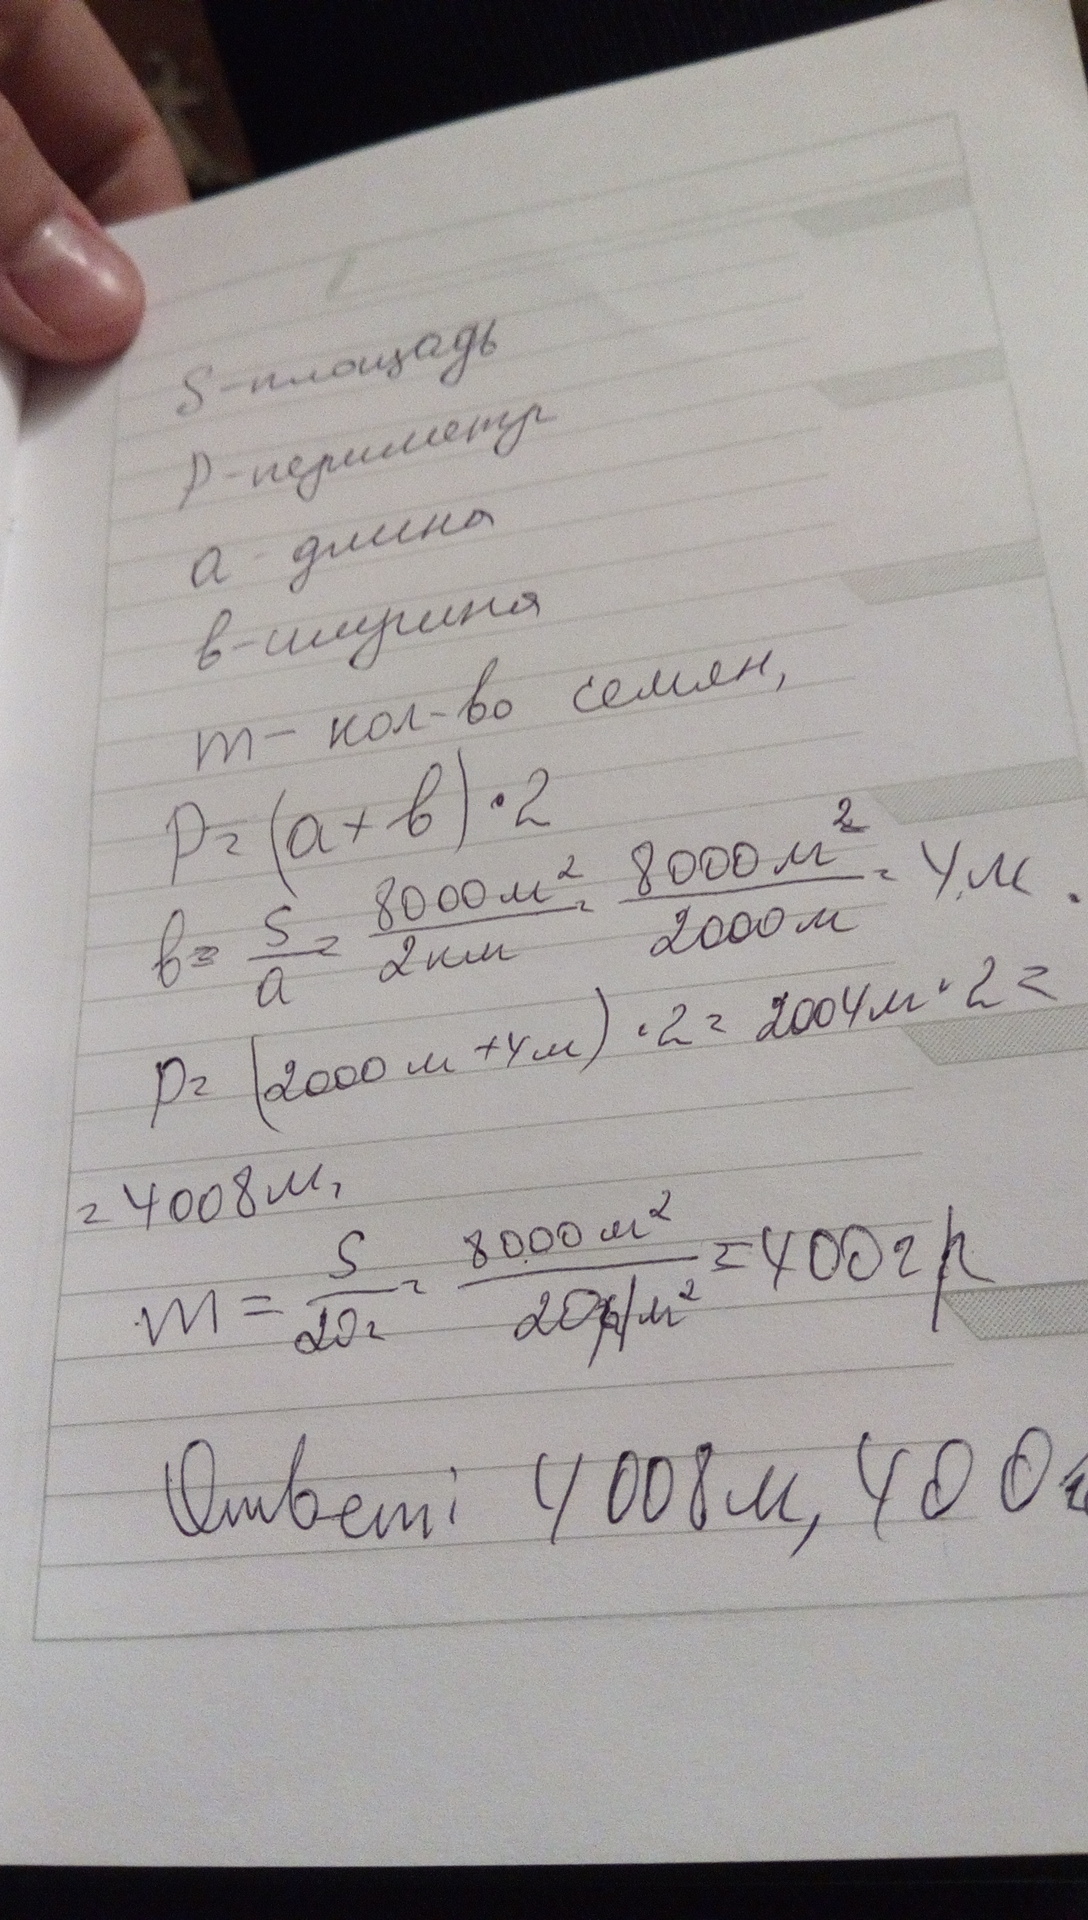 S-площадь
P-периметр
a - длина
в-ширина
m- кол-во семян,
P=(a+в)·2
в= S/a = 8000м²/2км = 8000м²/2000м = 4м.
P= (2000м+4м)·2= 2004м·2=
=4008м,
m = S/20г = 8000м²/20г/м² =400гр
Ответ: 4008м, 400г